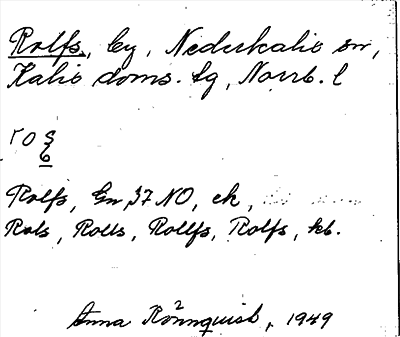 Rolfs, by, Nederkalix sn,
Kalix doms. tg, Norrb. l
ros
6
Rolfs, Gn 37 NO, ek,
Rols, Rolls, Rollfs, Rolfs, kb.
Anna Rönnquist, 1949